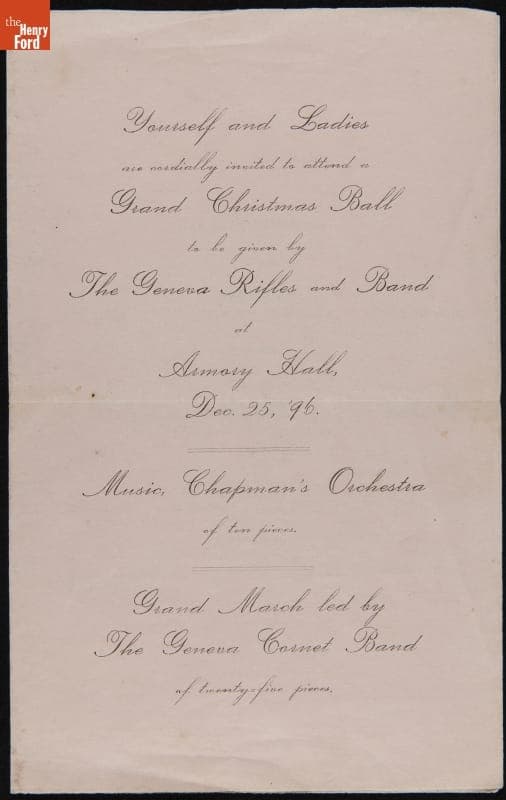 the
Henry
Ford
Yourself and Ladies
are cordially invited to attend a
Grand Christmas Ball
to be given by
The Geneva Rifles and Band
at
Armory Hall,
Dec. 25, '96.
Music, Chapman's Orchestra
of ten pieces.
Grand March led by
The Geneva Cornet Band
of twenty=five pieces.